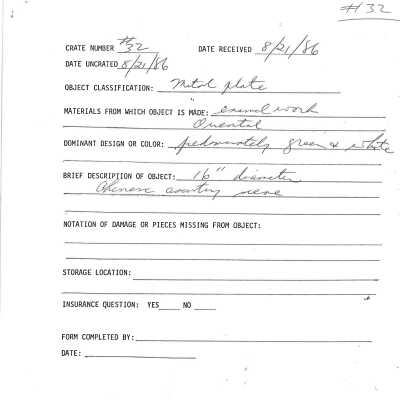 #32
CRATE NUMBER #32 DATE RECEIVED 8/21/86
DATE UNCRATED 8/21/86
OBJECT CLASSIFICATION: Metal plate
MATERIALS FROM WHICH OBJECT IS MADE: enamel work
Oriental
DOMINANT DESIGN OR COLOR: predominately green & white
BRIEF DESCRIPTION OF OBJECT: 16" diameter
Chinese country scene
NOTATION OF DAMAGE OR PIECES MISSING FROM OBJECT:
STORAGE LOCATION:
INSURANCE QUESTION: YES NO
FORM COMPLETED BY:
DATE: